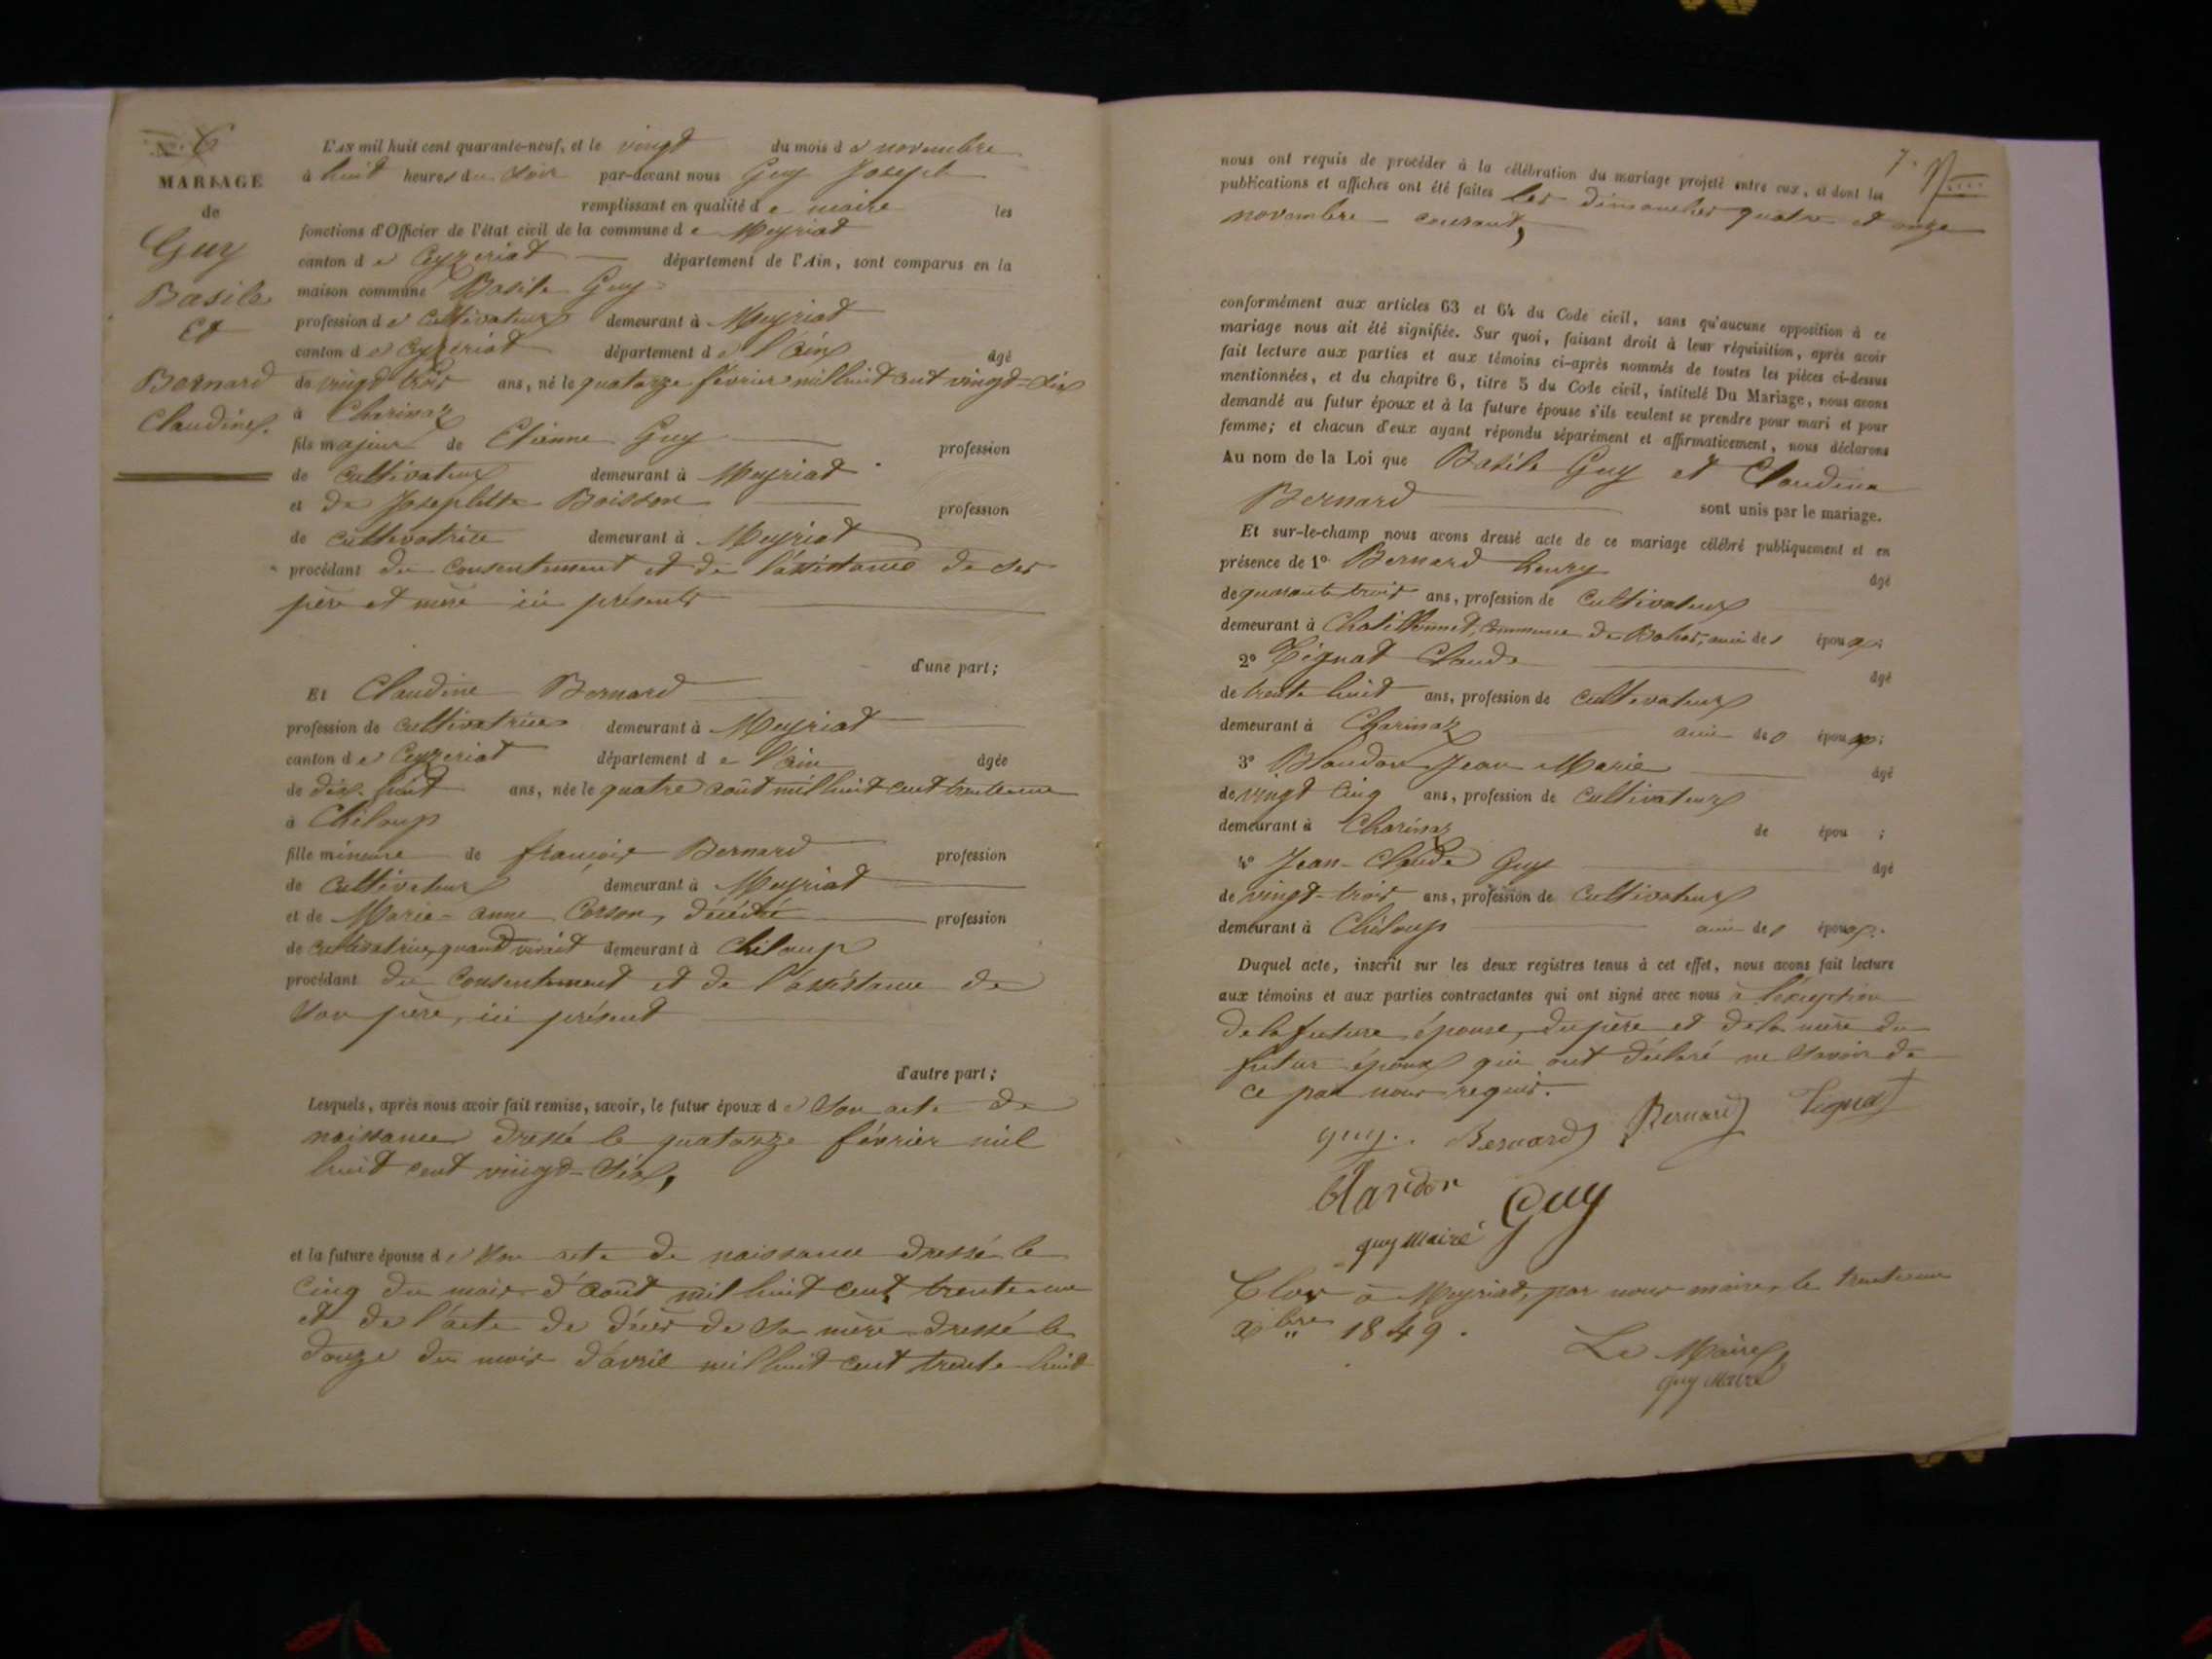 N.° 6
MARIAGE
de
Guy
Basile
Et
Bernard
Claudine.
L'AN mil huit cent quarante-neuf, et le vingt du mois de novembre
à huit heures du soir par-devant nous Guy Joseph
remplissant en qualité de maire les
fonctions d'Officier de l'état civil de la commune de Meyriat
canton de Ceyzeriat département de l'Ain, sont comparus en la
maison commune Basile Guy
profession de cultivateur demeurant à Meyriat
canton de Ceyzeriat département de l'Ain âgé
de vingt trois ans, né le quatorze février mil huit cent vingt-six
à Charinaz
fils majeur de Etienne Guy profession
de cultivateur demeurant à Meyriat
et de Josephte Boisson profession
de cultivatrice demeurant à Meyriat
procédant du consentement et de l'assistance de ses
père et mère ici présents
d'une part;
Et Claudine Bernard
profession de cultivatrice demeurant à Meyriat
canton de Ceyzeriat département de l'Ain âgée
de dix-huit ans, née le quatre août mil huit cent trente-une
à Chiloup
fille mineure de françois Bernard profession
de cultivateur demeurant à Meyriat
et de Marie-anne Corson, décédée profession
de cultivatrice, quand vivait demeurant à Chiloup
procédant du consentement et de l'assistance de
son père, ici présent
d'autre part;
Lesquels, après nous avoir fait remise, savoir, le futur époux de son acte de
naissance dressé le quatorze février mil
huit cent vingt-six,
et la future épouse de son acte de naissance dressé le
cinq du mois d'août mil huit cent trente-une
et de l'acte de décès de sa mère dressé le
douze du mois d'avril mil huit cent trente-huit
7.
nous ont requis de procéder à la célébration du mariage projeté entre eux, et dont les
publications et affiches ont été faites les dimanches quatre et onze
novembre courant,
conformément aux articles 63 et 64 du Code civil, sans qu'aucune opposition à ce
mariage nous ait été signifiée. Sur quoi, faisant droit à leur réquisition, après avoir
fait lecture aux parties et aux témoins ci-après nommés de toutes les pièces ci-dessus
mentionnées, et du chapitre 6, titre 5 du Code civil, intitulé Du Mariage, nous avons
demandé au futur époux et à la future épouse s'ils veulent se prendre pour mari et pour
femme; et chacun d'eux ayant répondu séparément et affirmativement, nous déclarons
Au nom de la Loi que Basile Guy et Claudine
Bernard sont unis par le mariage.
Et sur-le-champ nous avons dressé acte de ce mariage célébré publiquement et en
présence de 1° Bernard henry âgé
de quarante trois ans, profession de cultivateur
demeurant à Chatillonnet, commune de Bohas, ami des époux;
2° Tignat Claude âgé
de trente huit ans, profession de cultivateur
demeurant à Charinaz ami des époux;
3° Blandon Jean Marie âgé
de vingt cinq ans, profession de cultivateur
demeurant à Charinaz de épou ;
4° Jean-Claude Guy âgé
de vingt-trois ans, profession de cultivateur
demeurant à Chiloup ami des époux.
Duquel acte, inscrit sur les deux registres tenus à cet effet, nous avons fait lecture
aux témoins et aux parties contractantes qui ont signé avec nous à l'exception
de la future épouse, du père et de la mère du
futur époux qui ont déclaré ne savoir de
ce par nous requis.
guy. Bernard Bernard Tignat
blandon Guy
guy maire
Clos à Meyriat, par nous maire, le trente-un
Xbre 1849.
Le Maire
guy maire